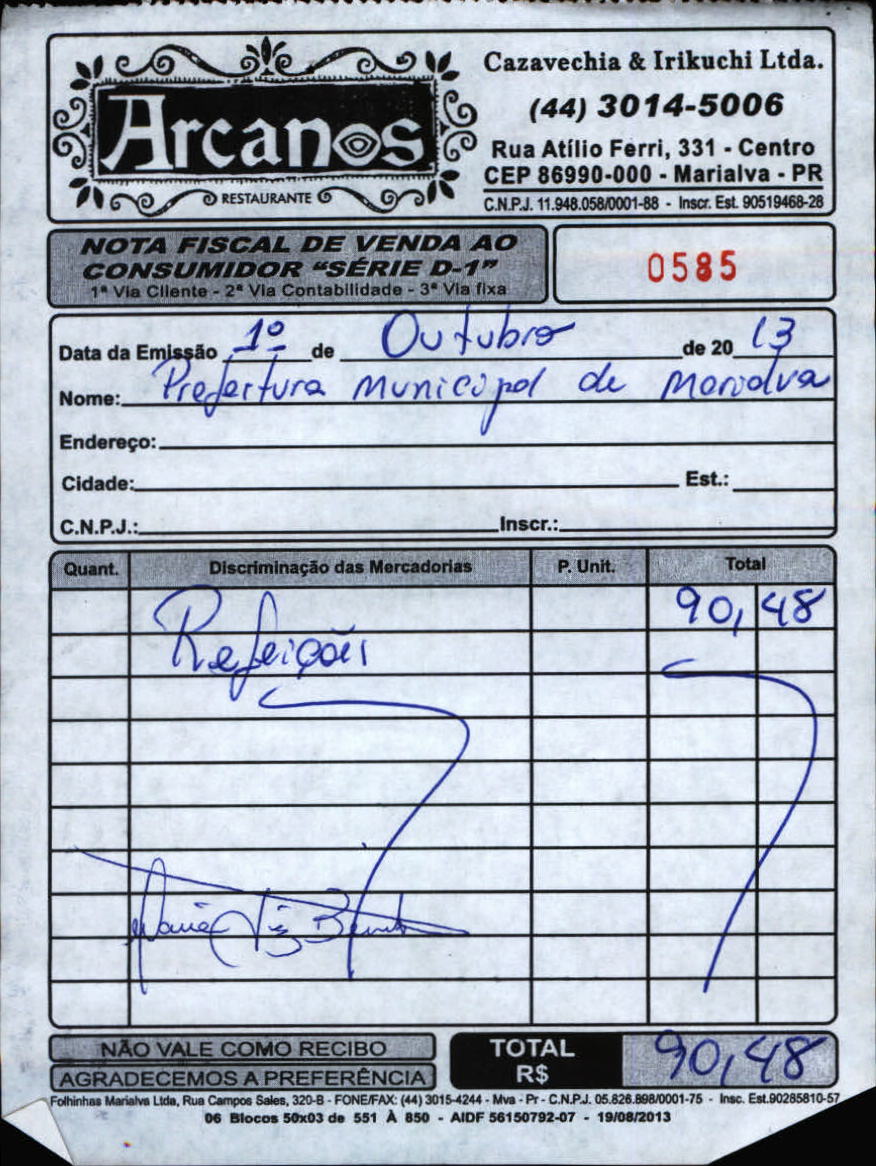 Arcanos
RESTAURANTE
Cazavechia & Irikuchi Ltda.
(44) 3014-5006
Rua Atílio Ferri, 331 - Centro
CEP 86990-000 - Marialva - PR
C.N.P.J. 11.948.058/0001-88 - Inscr. Est. 90519468-28
NOTA FISCAL DE VENDA AO
CONSUMIDOR "SÉRIE D-1"
1ª Via Cliente - 2ª Via Contabilidade - 3ª Via fixa
0585
Data da Emissão 1º de Outubro de 20 13
Nome: Prefeitura Municipal de Marialva
Endereço:
Cidade: Est.:
C.N.P.J.: Inscr.:
Quant. Discriminação das Mercadorias P. Unit. Total
Refeições 90,48
NÃO VALE COMO RECIBO
AGRADECEMOS A PREFERÊNCIA
TOTAL
R$ 90,48
Folhinhas Marialva Ltda, Rua Campos Sales, 320-B - FONE/FAX: (44) 3015-4244 - Mva - Pr - C.N.P.J. 05.826.898/0001-75 - Insc. Est.90285810-57
06 Blocos 50x03 de 551 À 850 - AIDF 56150792-07 - 19/08/2013